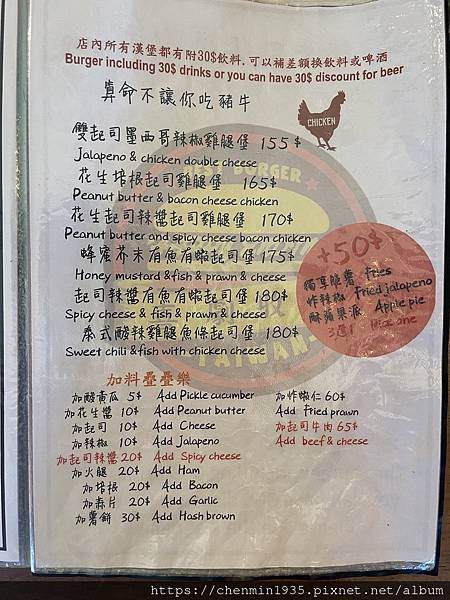 店內所有漢堡都有附30$飲料，可以補差額換飲料或啤酒
Burger including 30$ drinks or you can have 30$ discount for beer
算命不讓你吃豬牛
CHICKEN
雙起司墨西哥辣椒雞腿堡 155$
Jalapeno & chicken double cheese
花生培根起司雞腿堡 165$
Peanut butter & bacon cheese chicken
花生起司辣醬起司雞腿堡 170$
Peanut butter and spicy cheese bacon chicken
蜂蜜芥末有魚有蝦起司堡 175$
Honey mustard & fish & prawn & cheese
起司辣醬有魚有蝦起司堡 180$
Spicy cheese & fish & prawn & cheese
泰式酸辣雞腿魚條起司堡 180$
Sweet chili & fish with chicken cheese
+50$
獨享脆薯 fries
炸辣椒 fried jalapeno
酥蘋果派 Apple pie
3選1 Pick one
BURGER
TAIWAN
加料疊疊樂
加酸黃瓜 5$ Add Pickle cucumber
加花生醬 10$ Add Peanut butter
加起司 10$ Add Cheese
加辣椒 10$ Add Jalapeno
加起司辣醬 20$ Add Spicy cheese
加火腿 20$ Add Ham
加培根 20$ Add Bacon
加蒜片 20$ Add Garlic
加薯餅 30$ Add Hash brown
加炸蝦仁 60$
Add fried prawn
加起司牛肉 65$
Add beef & cheese
https://chenmin1935.pixnet.net/album